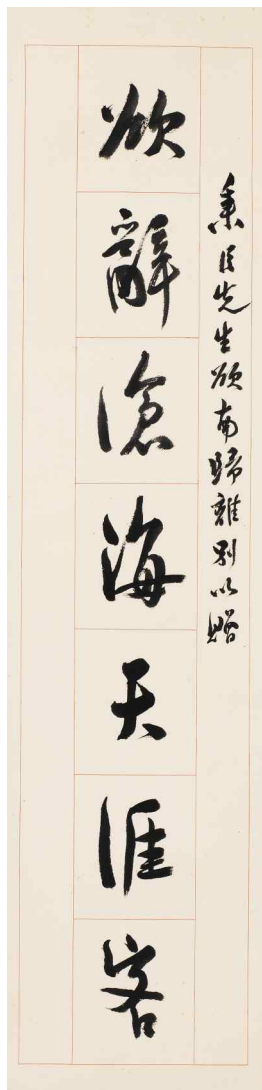 秉臣先生欲南歸離別以贈
欲辭滄海天涯客